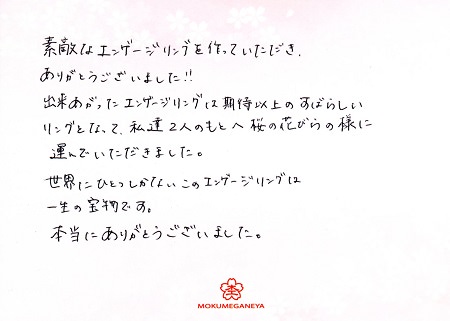 素敵なエンゲージリングを作っていただき、
ありがとうございました!!
出来あがったエンゲージリングは期待以上のすばらしい
リングとなって、私達2人のもとへ桜の花びらの様に
運んでいただきました。
世界にひとつしかないこのエンゲージリングは
一生の宝物です。
本当にありがとうございました。
MOKUMEGANEYA